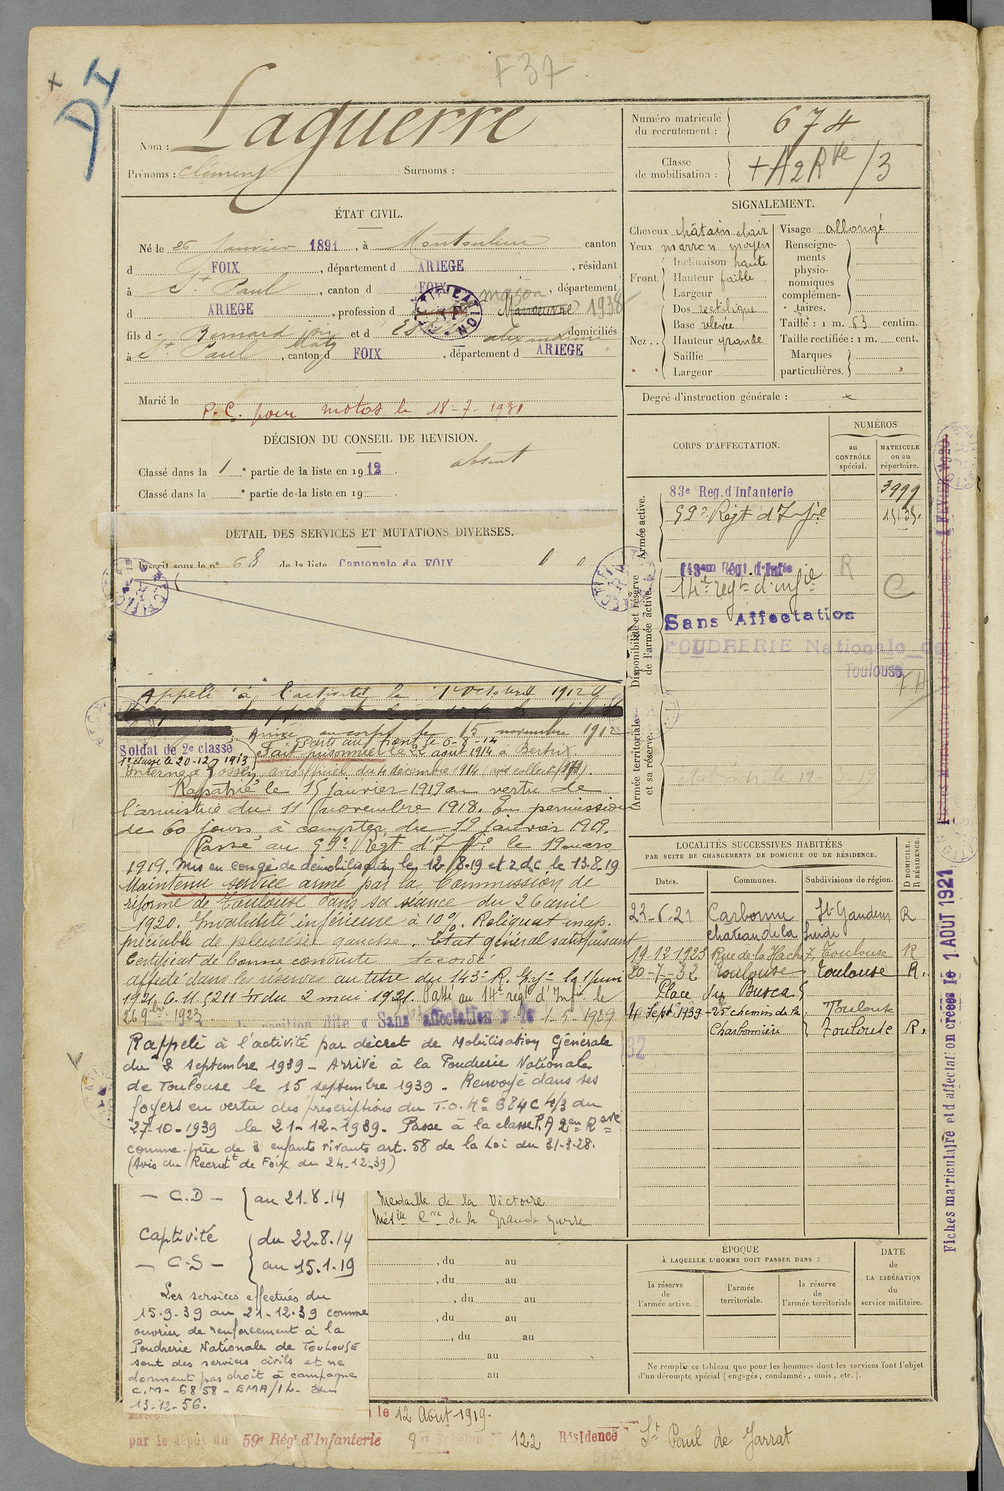 F 37
D I
Nom : Laguerre
Prénoms : Clément Surnoms :
ÉTAT CIVIL.
Né le 26 Janvier 1891, à Montoulieu canton
d FOIX, département d ARIEGE, résidant
à St Paul, canton d FOIX, département
d ARIEGE, profession d maçon Manœuvre 1938
fils d Bernard et d domiciliés
à St Paul, canton d FOIX, département d ARIEGE
Marié le
P.C. pour motos le 18-7-1931
DÉCISION DU CONSEIL DE REVISION.
Classé dans la 1e partie de la liste en 1912. absent
Classé dans la e partie de la liste en 19
DÉTAIL DES SERVICES ET MUTATIONS DIVERSES.
Inscrit sous le n° 68 de la liste Cantonale de FOIX
Appelé à l'activité le 1er Octobre 1912
Arrivé au corps le 15 novembre 1912
Soldat de 2e classe
1e classe le 20-12-1913
Parti au front le 6-8-14
Fait prisonnier le 22 août 1914 à Bertrix
Interné à avis officiel du 4 décembre 1914
Rapatrié le 15 janvier 1919 en vertu de
l'armistice du 11 novembre 1918. En permission
de 60 jours à compter du 19 janvier 1919.
Passé au 59e Regt d'Infie le 19 mars
1919. Mis en congé de démobilisation le 12-8-19 et r.d.c. le 13.8.19
Maintenu service armé par la Commission de
réforme de Toulouse dans sa séance du 26 avril
1920. Invalidité inférieure à 10%. Reliquat inap-
préciable de pleurésie gauche. Etat général satisfaisant
Certificat de bonne conduite Accordé
affecté dans les réserves au titre du 143e R. le 1 juin
1921 C.M 5211 du 2 mai 1921. Passé au 14e regt d'Infie le
26 9bre 1923
position dite « Sans affectation » le 1-5-1929
Rappelé à l'activité par décret de Mobilisation Générale
du 2 septembre 1939 - Arrivé à la Poudrerie Nationale
de Toulouse le 15 septembre 1939 - Renvoyé dans ses
foyers en vertu des prescriptions du T.O. No 684C 4/3 du
27-10-1939 le 21-12-1939. Passe à la classe P.A 2e Rve
comme père de 3 enfants vivants art. 58 de la Loi du 31-3-28.
(Avis du Recrutt de Foix du 24-12-39)
- C.D - { au 21.8.14
Captivité { du 22.8.14
- C.S - { au 15.1.19
Les services effectués du
15-9-39 au 21-12-39 comme
ouvrier de renforcement à la
Poudrerie Nationale de TOULOUSE
sont des services civils et ne
donnent pas droit à campagne
C.M- 6858- EMA/1L- du
13-12-56.
Médaille de la Victoire
Médlle Cve de la Grande guerre
, du au
, du au
, du au
, du au
, du au
au
au
le 12 Août 1919.
par le dépôt du 59e Régt d'Infanterie 122 Résidence St Paul de Jarrat
Numéro matricule du recrutement : 674
Classe de mobilisation : + A 2 Rve /3
SIGNALEMENT.
Cheveux châtain clair
Yeux marron moyen
Front. Inclinaison haute
Hauteur faible
Largeur
Nez.. Dos rectiligne
Base relevée
Hauteur grande
Saillie
Largeur
Visage allongé
Renseigne-
ments
physio-
nomiques
complémen-
taires.
Taille : 1 m. 63 centim.
Taille rectifiée : 1 m. cent.
Marques
particulières.
Degré d'instruction générale :
CORPS D'AFFECTATION.
NUMÉROS
au CONTRÔLE spécial.
MATRICULE ou au répertoire.
Armée active.
83e Reg.d'Infanterie 3999
59e Regt d'Infie
Disponibilité et réserve de l'armée active.
143em Régt.d'Infie R
14e regt d'infie C
Sans Affectation
POUDRERIE Nationale de
Toulouse
Armée territoriale et sa réserve.
LOCALITÉS SUCCESSIVES HABITÉES
PAR SUITE DE CHANGEMENTS DE DOMICILE OU DE RÉSIDENCE.
Dates. Communes. Subdivisions de région. D DOMICILE. R RÉSIDENCE.
23-6-21 Carbonne St Gaudens R
chateau de la
19-12-1925 Rue de la Hache 7, Toulouse R
20-7-32 Toulouse Toulouse R.
Place du Busca 5
4 Sept 1939 - 25 chemin de la Toulouse
Charbonnière Toulouse R.
ÉPOQUE
À LAQUELLE L'HOMME DOIT PASSER DANS :
la réserve de l'armée active.
l'armée territoriale.
la réserve de l'armée territoriale
DATE DE LA LIBÉRATION du service militaire.
Ne remplir ce tableau que pour les hommes dont les services font l'objet
d'un décompte spécial (engagés, condamné, omis, etc.).
Fiches matriculaire et d'affectation créées le 1 AOUT 1921